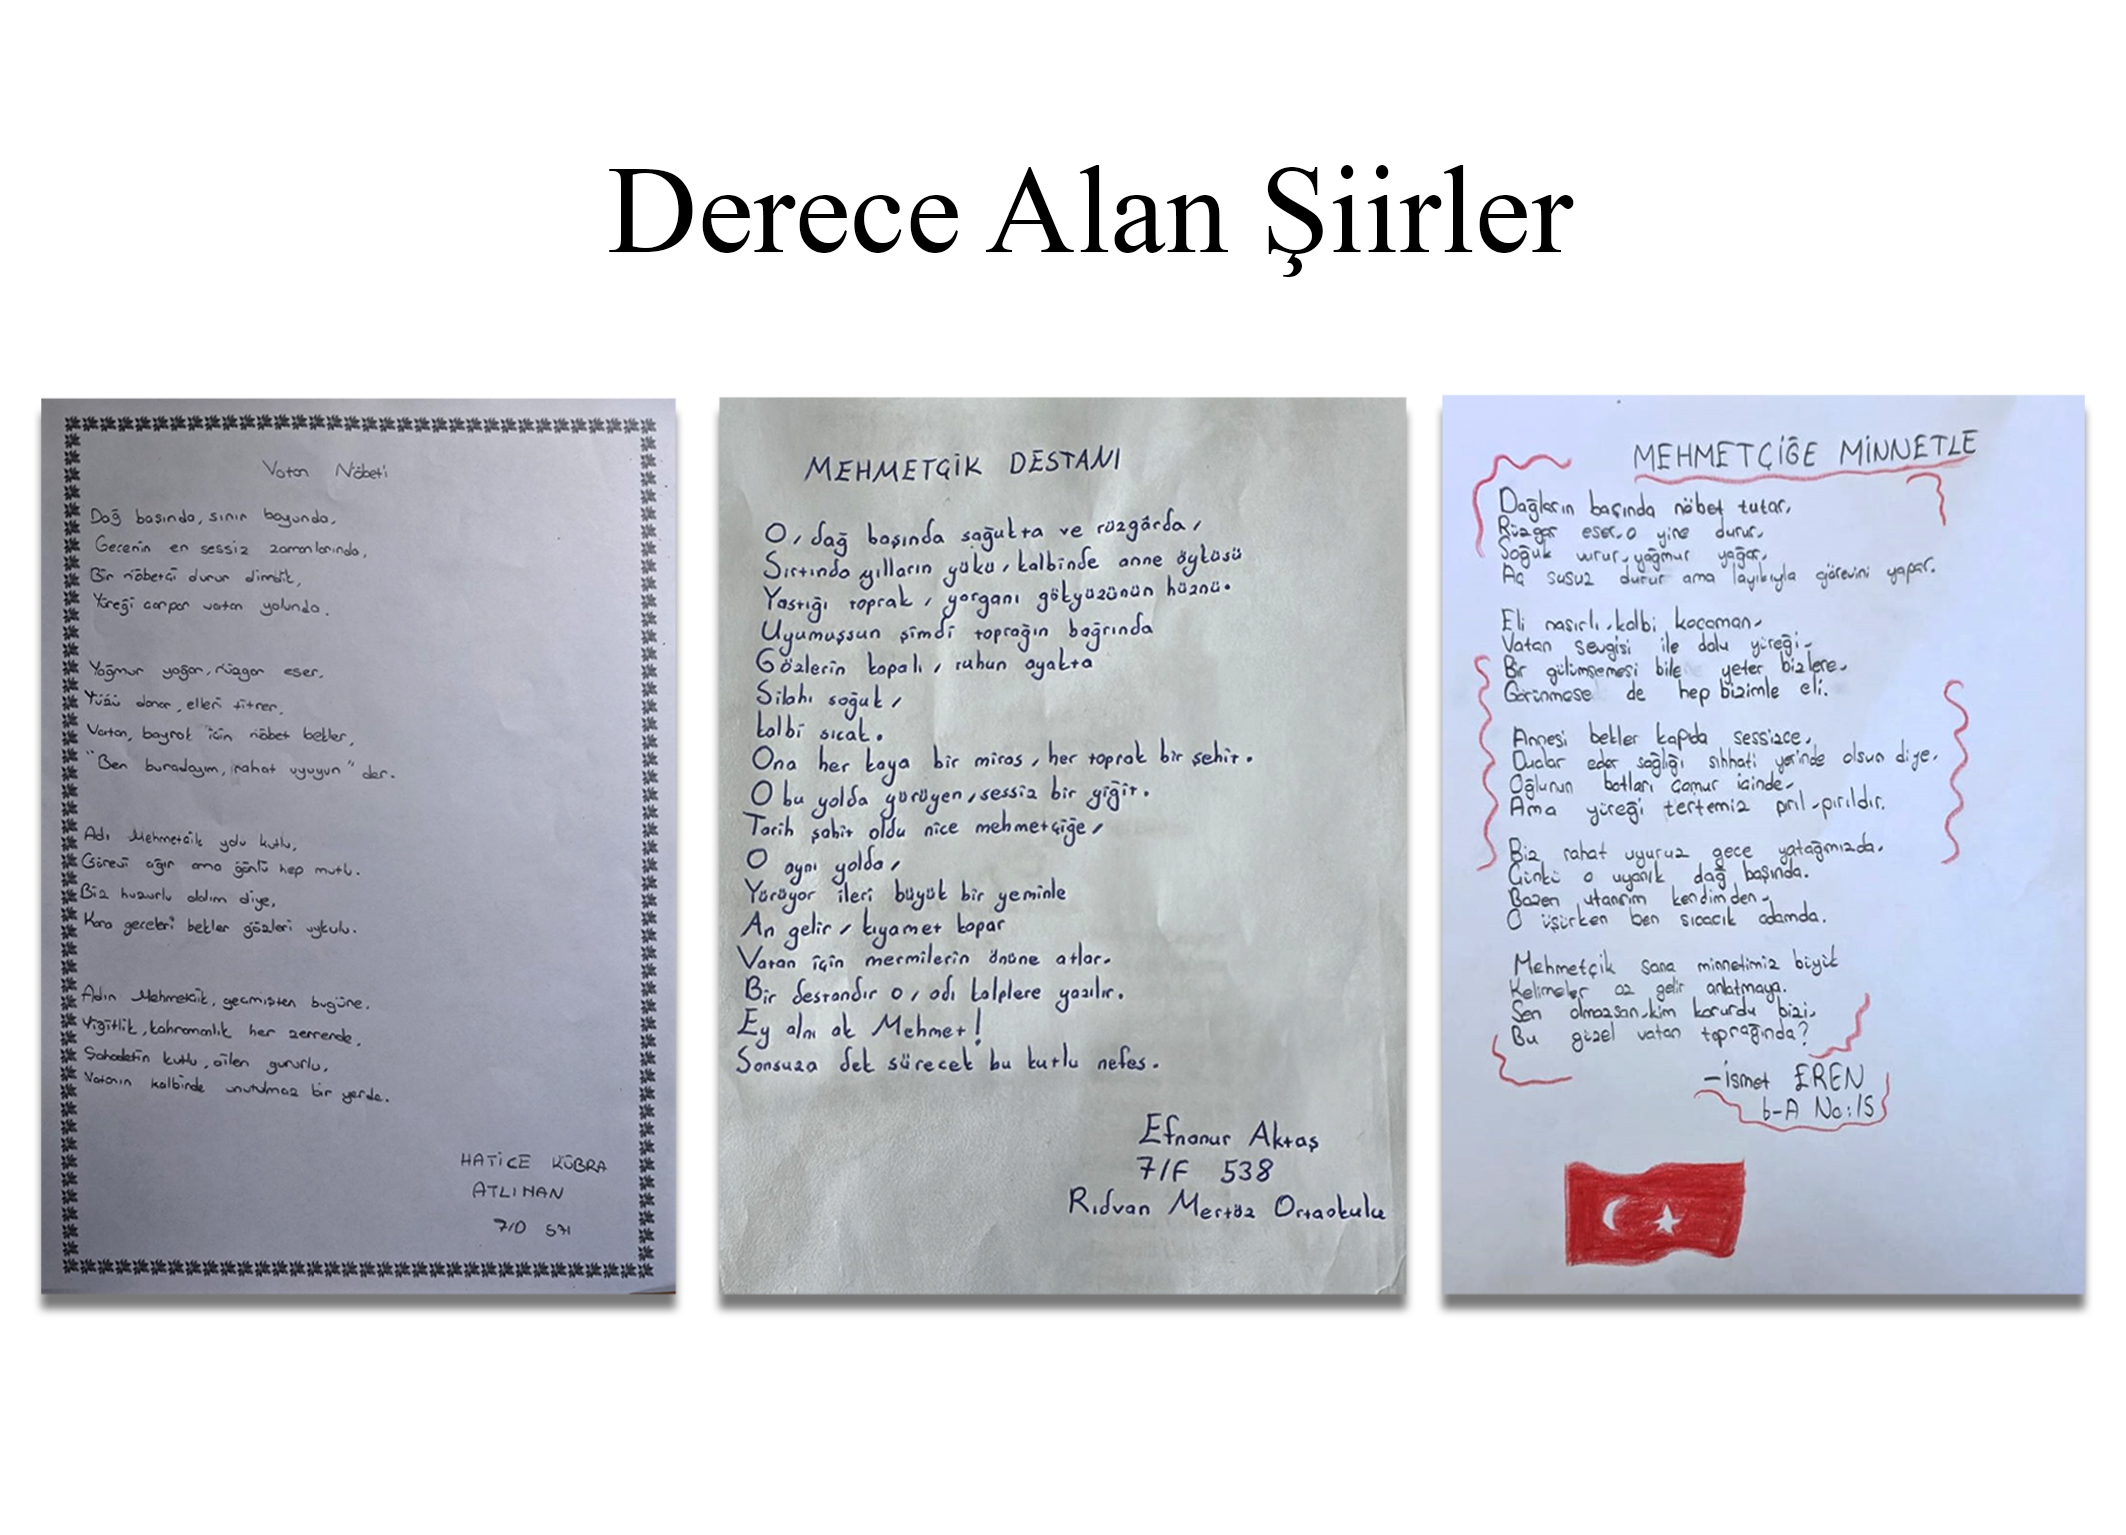 Derece Alan Şiirler
Vatan Nöbeti
Dağ başında, sınır boyunda,
Gecenin en sessiz zamanlarında,
Bir nöbetçi durur dimdik,
Yüreği çarpar vatan yolunda.
Yağmur yağar, rüzgar eser,
Yüzü donar, elleri titrer,
Vatan, bayrak için nöbet bekler,
"Ben buradayım, rahat uyuyun" der.
Adı Mehmetçik yolu kutlu,
Görevi ağır ama gönlü hep mutlu.
Biz huzurlu olalım diye,
Kara geceleri bekler gözleri uykulu.
Adın Mehmetçik, geçmişten bugüne,
Yiğitlik, kahramanlık her zerrende,
Şahadetin kutlu, ailen gururlu,
Vatanın kalbinde unutulmaz bir yerde.
HATİCE KÜBRA
ATLIHAN
7/D 571
MEHMETÇİK DESTANI
O, dağ başında soğukta ve rüzgârda,
Sırtında yılların yükü, kalbinde anne öyküsü
Yastığı toprak, yorganı gökyüzünün hüznü.
Uyumuşsun şimdi toprağın bağrında
Gözlerin kapalı, ruhun ayakta
Silahı soğuk,
kalbi sıcak.
Ona her kaya bir miras, her toprak bir şehit.
O bu yolda yürüyen, sessiz bir yiğit.
Tarih şahit oldu nice mehmetçiğe,
O aynı yolda,
Yürüyor ileri büyük bir yeminle
An gelir, kıyamet kopar
Vatan için mermilerin önüne atlar.
Bir destandır o, adı kalplere yazılır.
Ey alnı ak Mehmet!
Sonsuza dek sürecek bu kutlu nefes.
Efnanur Aktaş
7/F 538
Rıdvan Mertöz Ortaokulu
MEHMETÇİĞE MİNNETLE
Dağların başında nöbet tutar,
Rüzgar eser, o yine durur,
Soğuk vurur, yağmur yağar,
Aç susuz durur ama layıkıyla görevini yapar.
Eli nasırlı, kalbi kocaman,
Vatan sevgisi ile dolu yüreği,
Bir gülümsemesi bile yeter bizlere,
Görünmese de hep bizimle eli.
Annesi bekler kapıda sessizce,
Dualar eder sağlığı sıhhati yerinde olsun diye,
Oğlunun botları çamur içinde,
Ama yüreği tertemiz pırıl-pırıldır.
Biz rahat uyuruz gece yatağımızda,
Çünkü o uyanık dağ başında.
Bazen utanırım kendimden,
O üşürken ben sıcacık odamda.
Mehmetçik sana minnetimiz büyük
Kelimeler az gelir anlatmaya.
Sen olmazsan, kim korurdu bizi,
Bu güzel vatan toprağında?
-İsmet EREN
6-A No:15